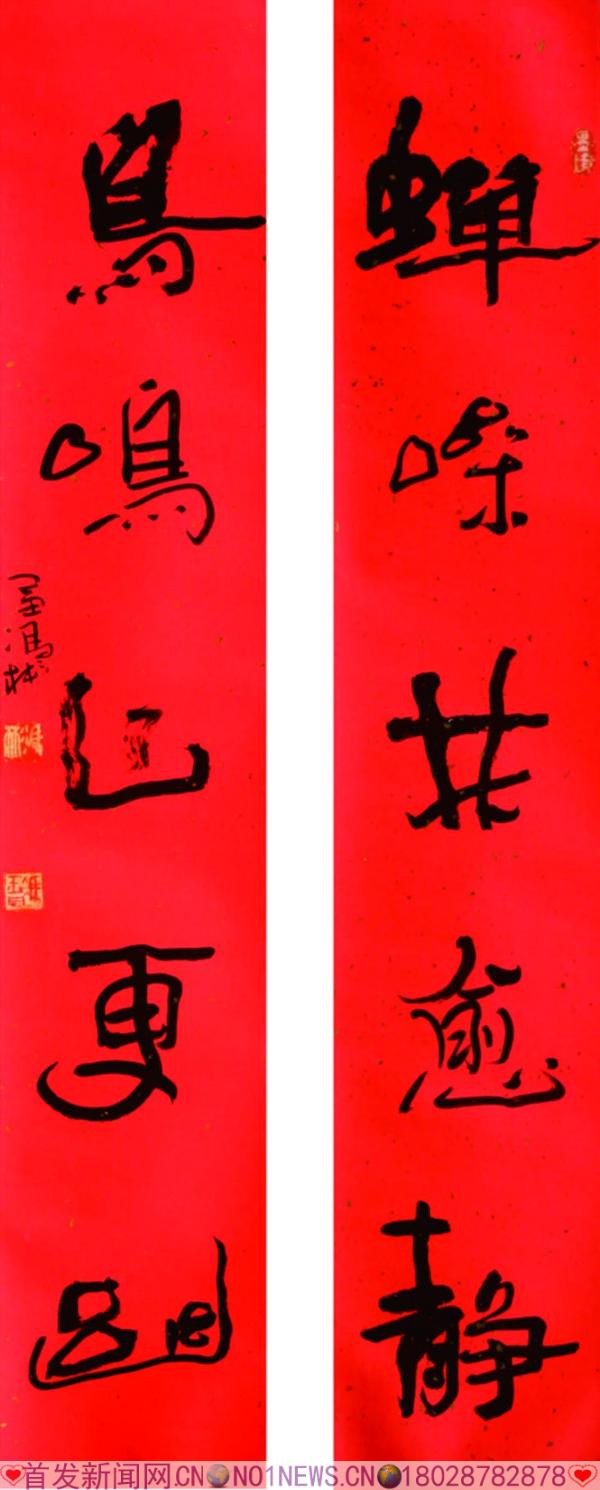 蝉噪林愈静
鳥鳴山更幽
馮彬
首发新闻网.CN NO1NEWS.CN 18028782878